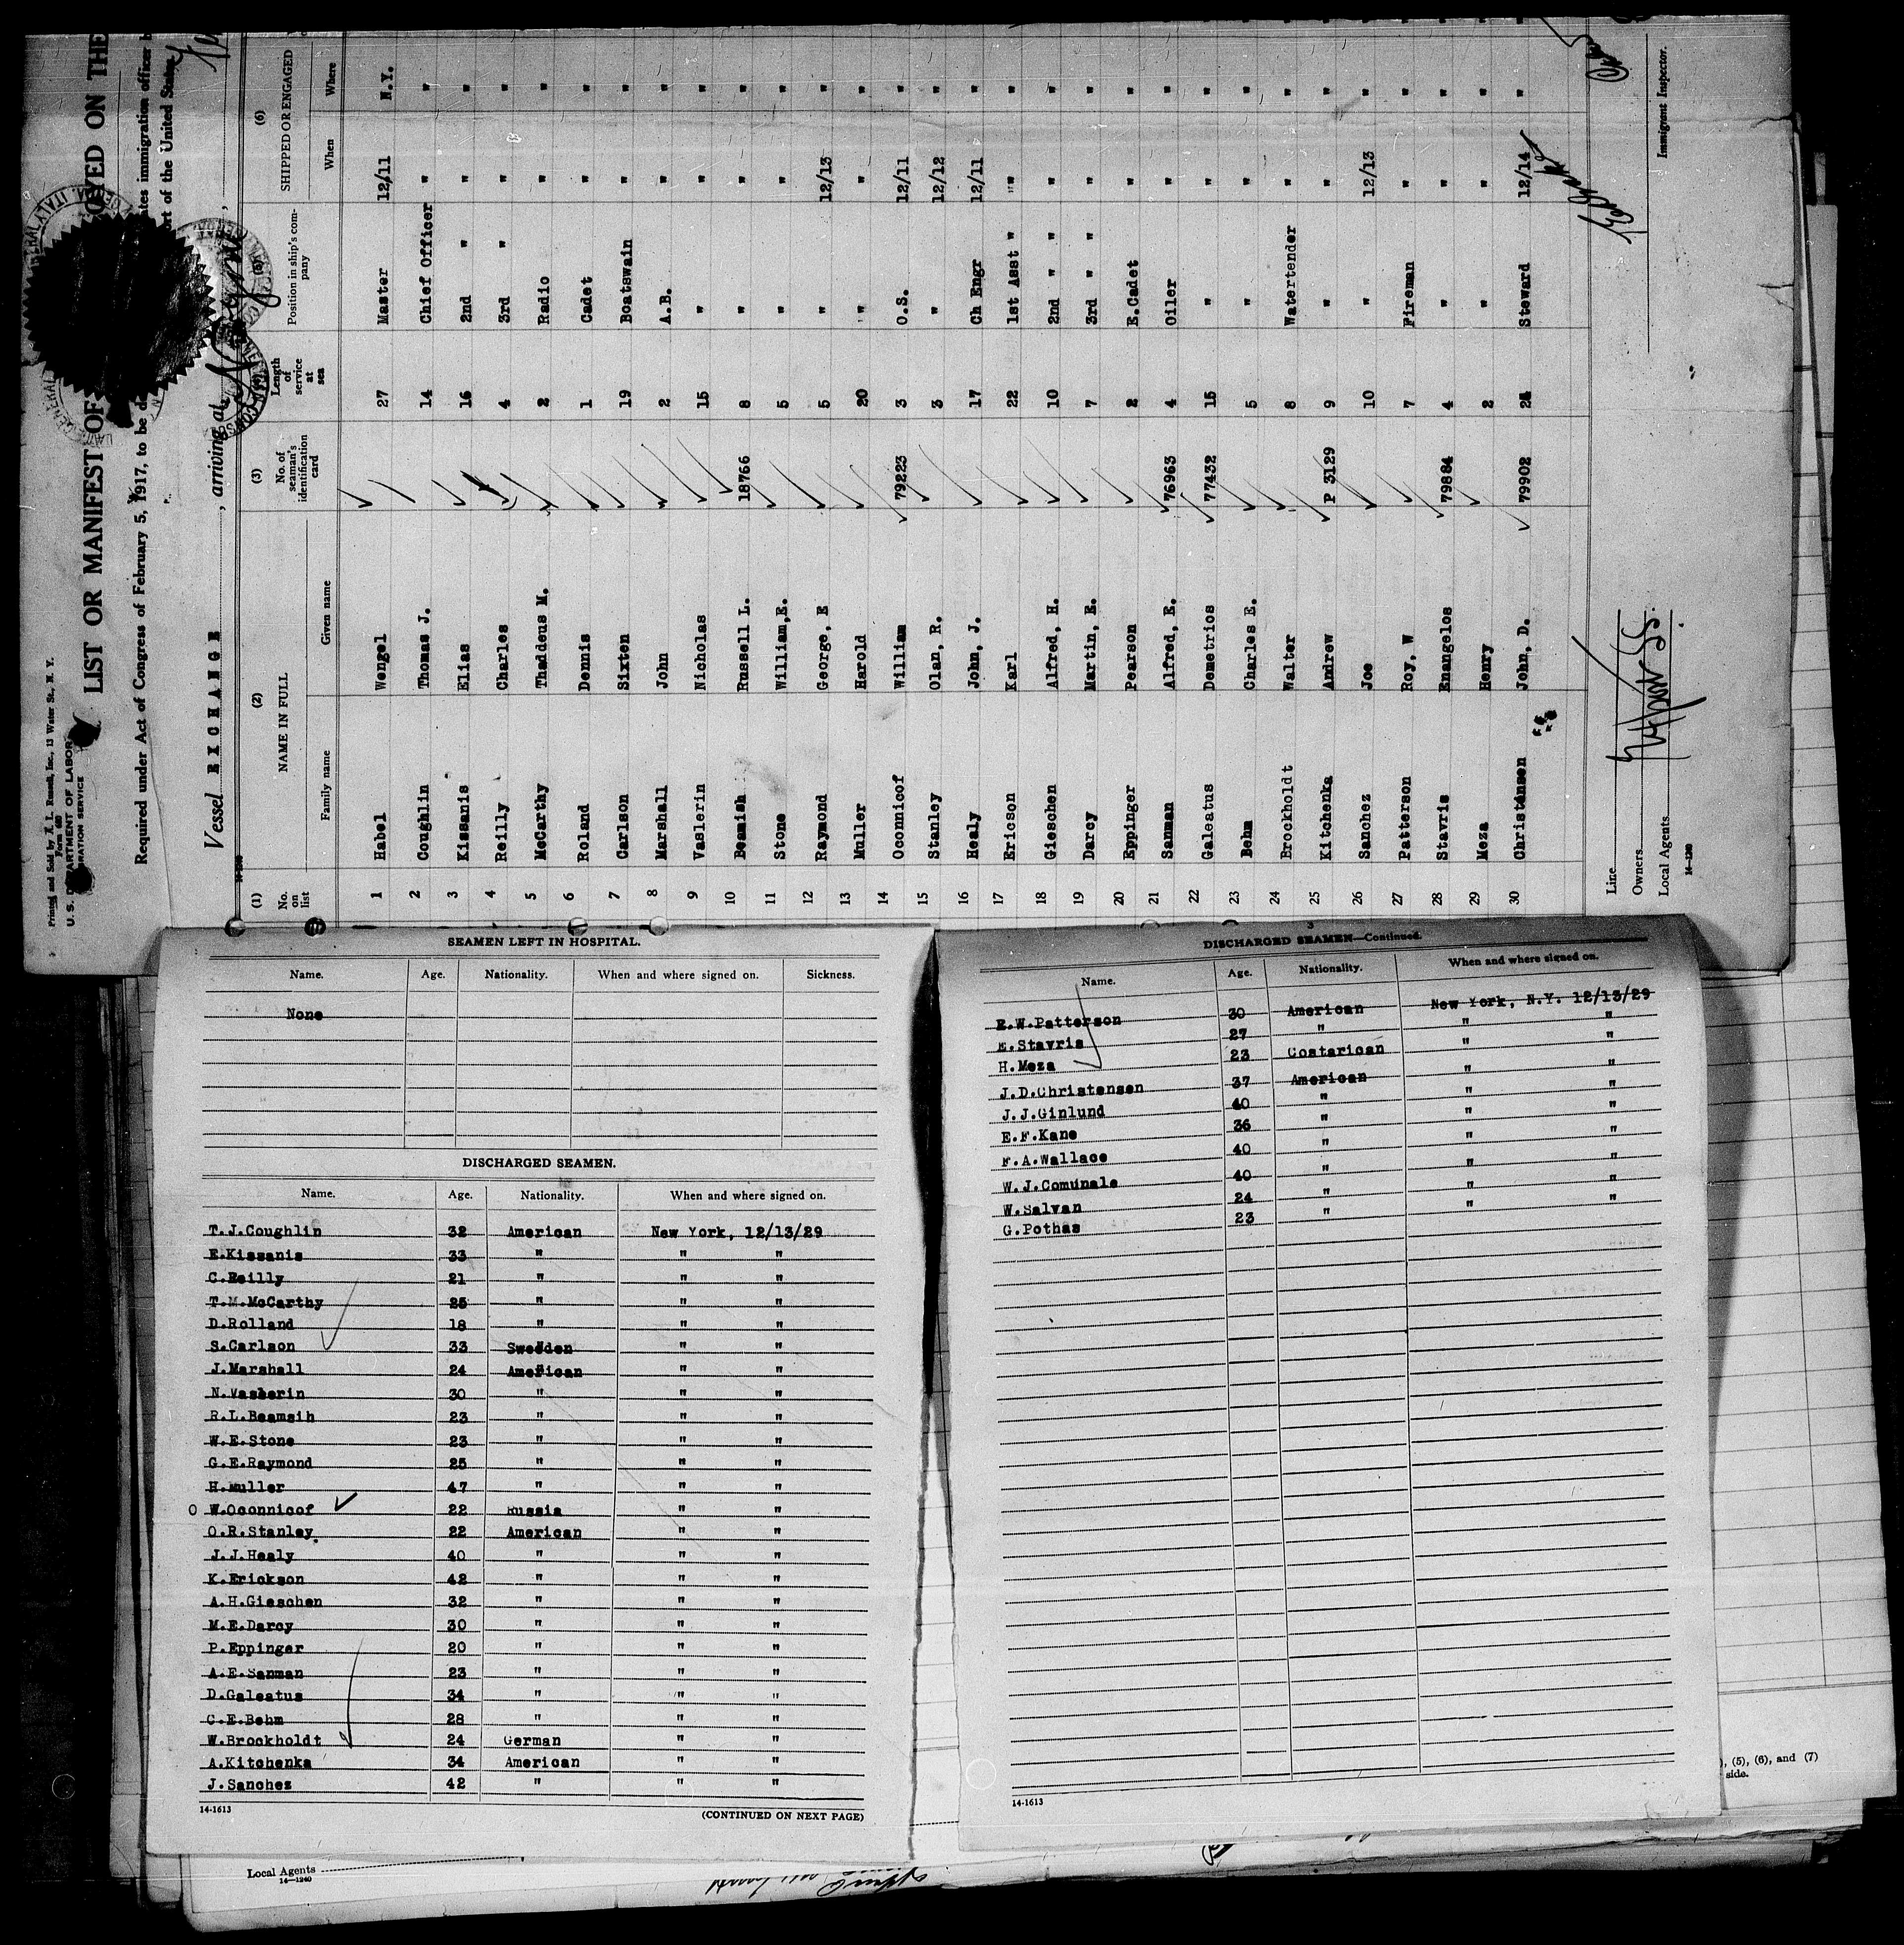 Printed and Sold by A. L. Russell, Inc., 13 Water St., N. Y.
Form 680
U. S. DEPARTMENT OF LABOR
LIST OR MANIFEST OF OYED ON THE
Required under Act of Congress of February 5, 1917, to be de tes immigration officer b
rt of the United States
Vessel EXCHANGE , arriving at
(1) (2) (3) (5) (6)
No. on list NAME IN FULL No. of seaman's identification card Length of service at sea Position in ship's company SHIPPED OR ENGAGED
Family name Given name When Where
1 Habel Wengel 27 Master 12/11 N.Y.
2 Coughlin Thomas J. 14 Chief Officer " "
3 Kissanis Elias 16 2nd " " "
4 Reilly Charles 4 3rd " " "
5 McCarthy Thaddeus M. 2 Radio " "
6 Roland Dennis 1 Cadet " "
7 Carlson Sixten 19 Boatswain " "
8 Marshall John 2 A.B. " "
9 Vaslerin Nicholas 15 " " "
10 Beamish Russell L. 18766 8 " " "
11 Stone William,E. 5 " " "
12 Raymond George, E 5 " 12/13 "
13 Muller Harold 20 " " "
14 Oconnicof William 79223 3 O.S. 12/11 "
15 Stanley Olan, R. 3 " 12/12 "
16 Healy John, J. 17 Ch Engr 12/11 "
17 Ericson Karl 22 1st Asst " " "
18 Gieschen Alfred, H. 10 2nd " " " "
19 Darcy Martin, E. 7 3rd " " " "
20 Eppinger Pearson 2 E.Cadet " "
21 Sanman Alfred, E. 76963 4 Oiler " "
22 Galeatus Demetrios 77432 15 " " "
23 Behm Charles E. 5 " " "
24 Brockholdt Walter 8 Watertender " "
25 Kitchenka Andrew P 3129 9 " " "
26 Sanchez Joe 10 " 12/13 "
27 Patterson Roy, W 7 Fireman " "
28 Stavris Enangelos 79884 4 " " "
29 Meza Henry 2 " " "
30 Christensen John, D. 79902 Steward 12/14 "
Line
Owners
Local Agents
14—1240
Immigrant Inspector.
SEAMEN LEFT IN HOSPITAL.
Name. Age. Nationality. When and where signed on. Sickness.
None
DISCHARGED SEAMEN.
Name. Age. Nationality. When and where signed on.
T.J.Coughlin 32 American New York, 12/13/29
E.Kissanis 33 " " "
C.Reilly 21 " " "
T.M.McCarthy 25 " " "
D.Rolland 18 " " "
S.Carlson 33 Sweden " "
J.Marshall 24 American " "
N.Vaslerin 30 " " "
R.L.Beamsih 23 " " "
W.E.Stone 23 " " "
G.E.Raymond 25 " " "
H.Muller 47 " " "
O W.Oconnicof 22 Russia " "
O.R.Stanley 22 American " "
J.J.Healy 40 " " "
K.Erickson 42 " " "
A.H.Gieschen 32 " " "
M.E.Darcy 30 " " "
P.Eppinger 20 " " "
A.E.Sanman 23 " " "
D.Galeatus 34 " " "
C.E.Behm 28 " " "
W.Brockholdt 24 German " "
A.Kitchenka 34 American " "
J.Sanches 42 " " "
14-1613 (CONTINUED ON NEXT PAGE)
3
DISCHARGED SEAMEN—Continued.
Name. Age. Nationality. When and where signed on.
R.W.Patterson 30 American New York, N.Y. 12/13/29
E.Stavris 27 " " "
H.Meza 23 Costarican " "
J.D.Christensen 37 American " "
J.J.Ginlund 40 " " "
E.F.Kane 36 " " "
F.A.Wallace 40 " " "
W.J.Comunale 40 " " "
W.Salvan 24 " " "
G.Pothas 23 " " "
14-1613
), (5), (6), and (7)
side.
Local Agents
14—1240